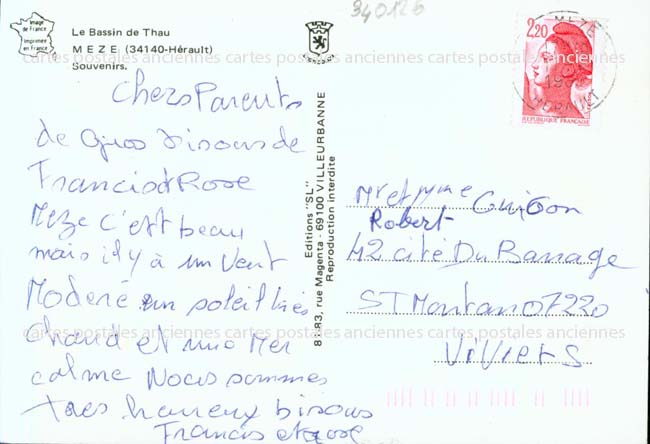 340126
Image de France
Imprimée en France
Le Bassin de Thau
MEZE (34140-Hérault)
Souvenirs.
Chers Parents
de gros bisous de
Francis et Rose
Meze c'est beau
mais il y à un vent
Moderé un soleil très
chaud et une Mer
calme Nous sommes
tres heureux bisous
Francis et Rose
Editions "SL"
81-83, rue Magenta - 69100 VILLEURBANNE
Reproduction interdite
2,20
REPUBLIQUE FRANÇAISE
MEZE
HERAULT
Mr et Mme
Robert
42 cité Du Barrage
ST Montan 07220
Viviers
cartes postales anciennes cartes postales anciennes cartes postales anciennes
cartes postales anciennes cartes postales anciennes cartes postales anciennes